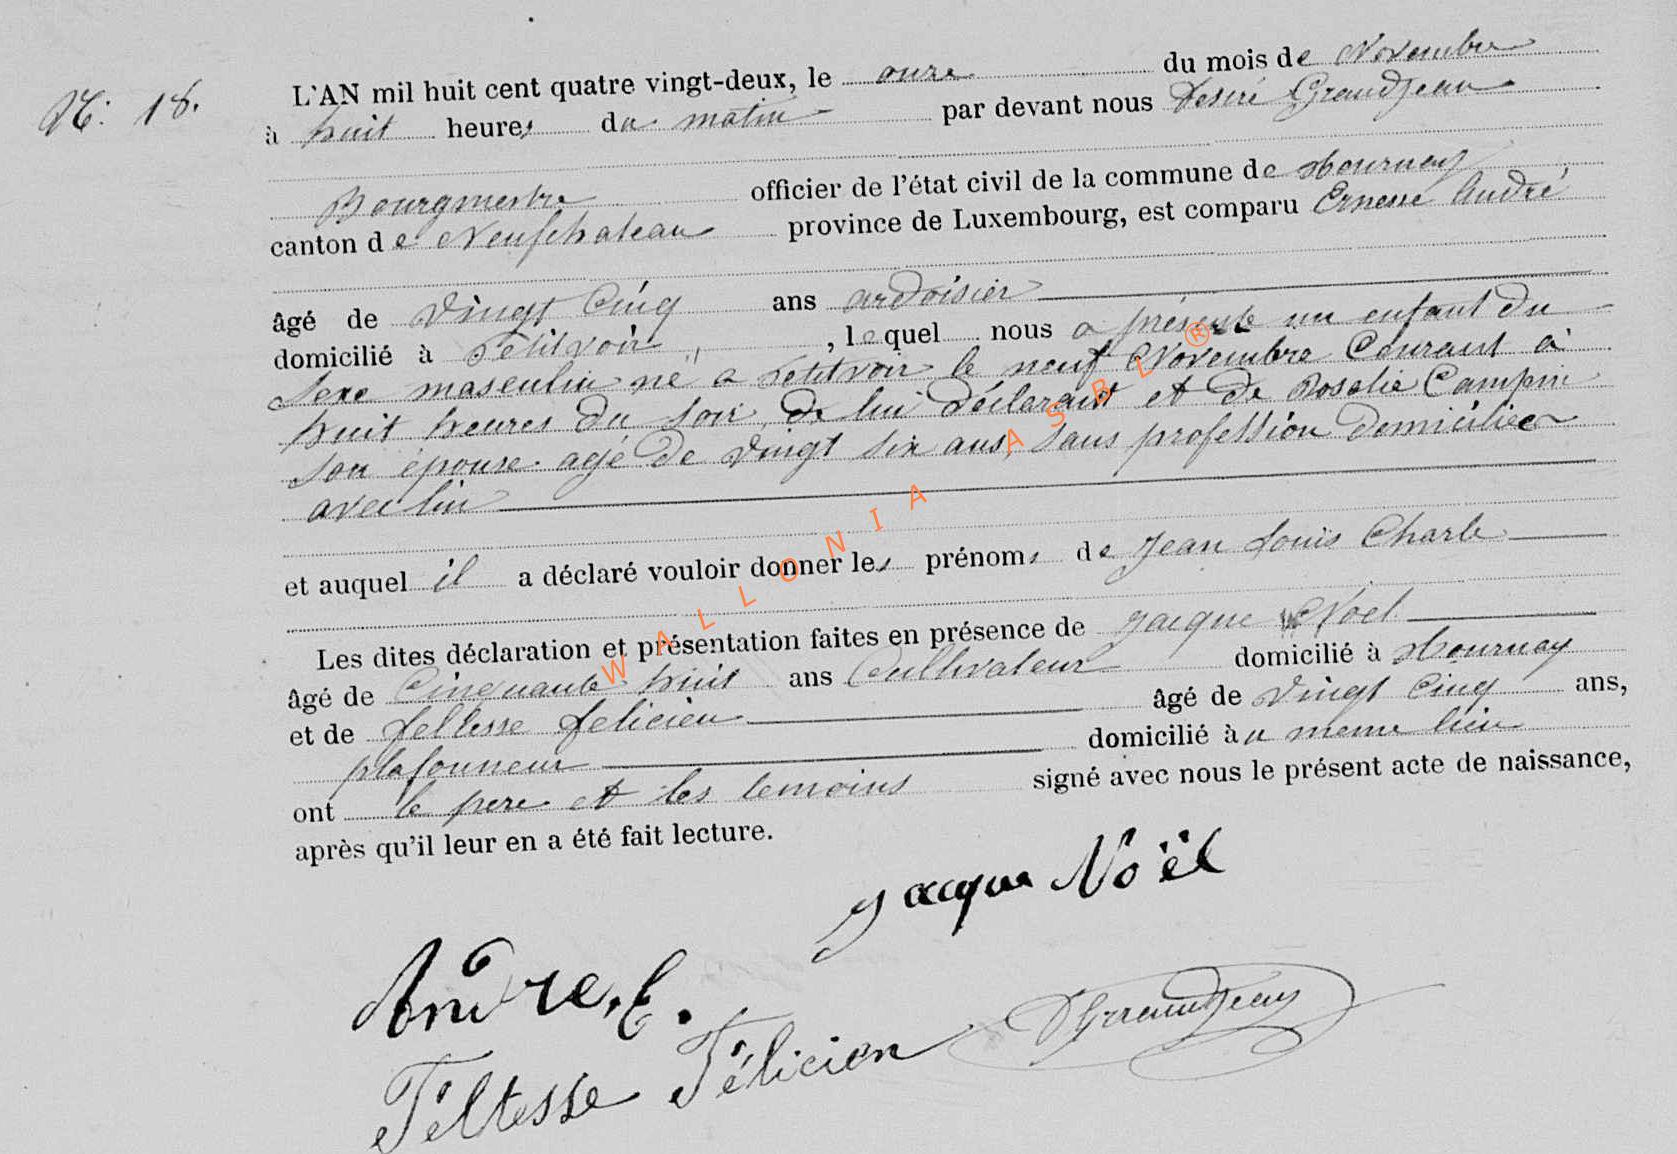 N: 18.
L'AN mil huit cent quatre vingt-deux, le onze du mois de Novembre
à huit heures du matin par devant nous Desiré Grandjean
Bourgmestre officier de l'état civil de la commune de Tournay
canton de Neufchateau province de Luxembourg, est comparu Ernesse André
âgé de vingt Cinq ans ardoisier
domicilié à Petitvoir, lequel nous a présenté un enfant du
sexe masculin né a Petitvoir le neuf Novembre Courant à
huit heures du soir, de lui déclarant et de Rosalie Campin
son épouse agé de vingt six ans, sans profession domiciliée
avec lui
et auquel il a déclaré vouloir donner les prénoms de Jean Louis Charle
Les dites déclaration et présentation faites en présence de Jacque Noel
âgé de Cinquante huit ans Cultivateur domicilié à Tournay
et de feltesse felicien âgé de vingt Cinq ans,
plafonneur domicilié au meme lieu
ont le pere et les temoins signé avec nous le présent acte de naissance,
après qu'il leur en a été fait lecture.
Jacque Noël
André, E.
DGrandjean
Feltesse Félicien
WALLONIA ASBL ®